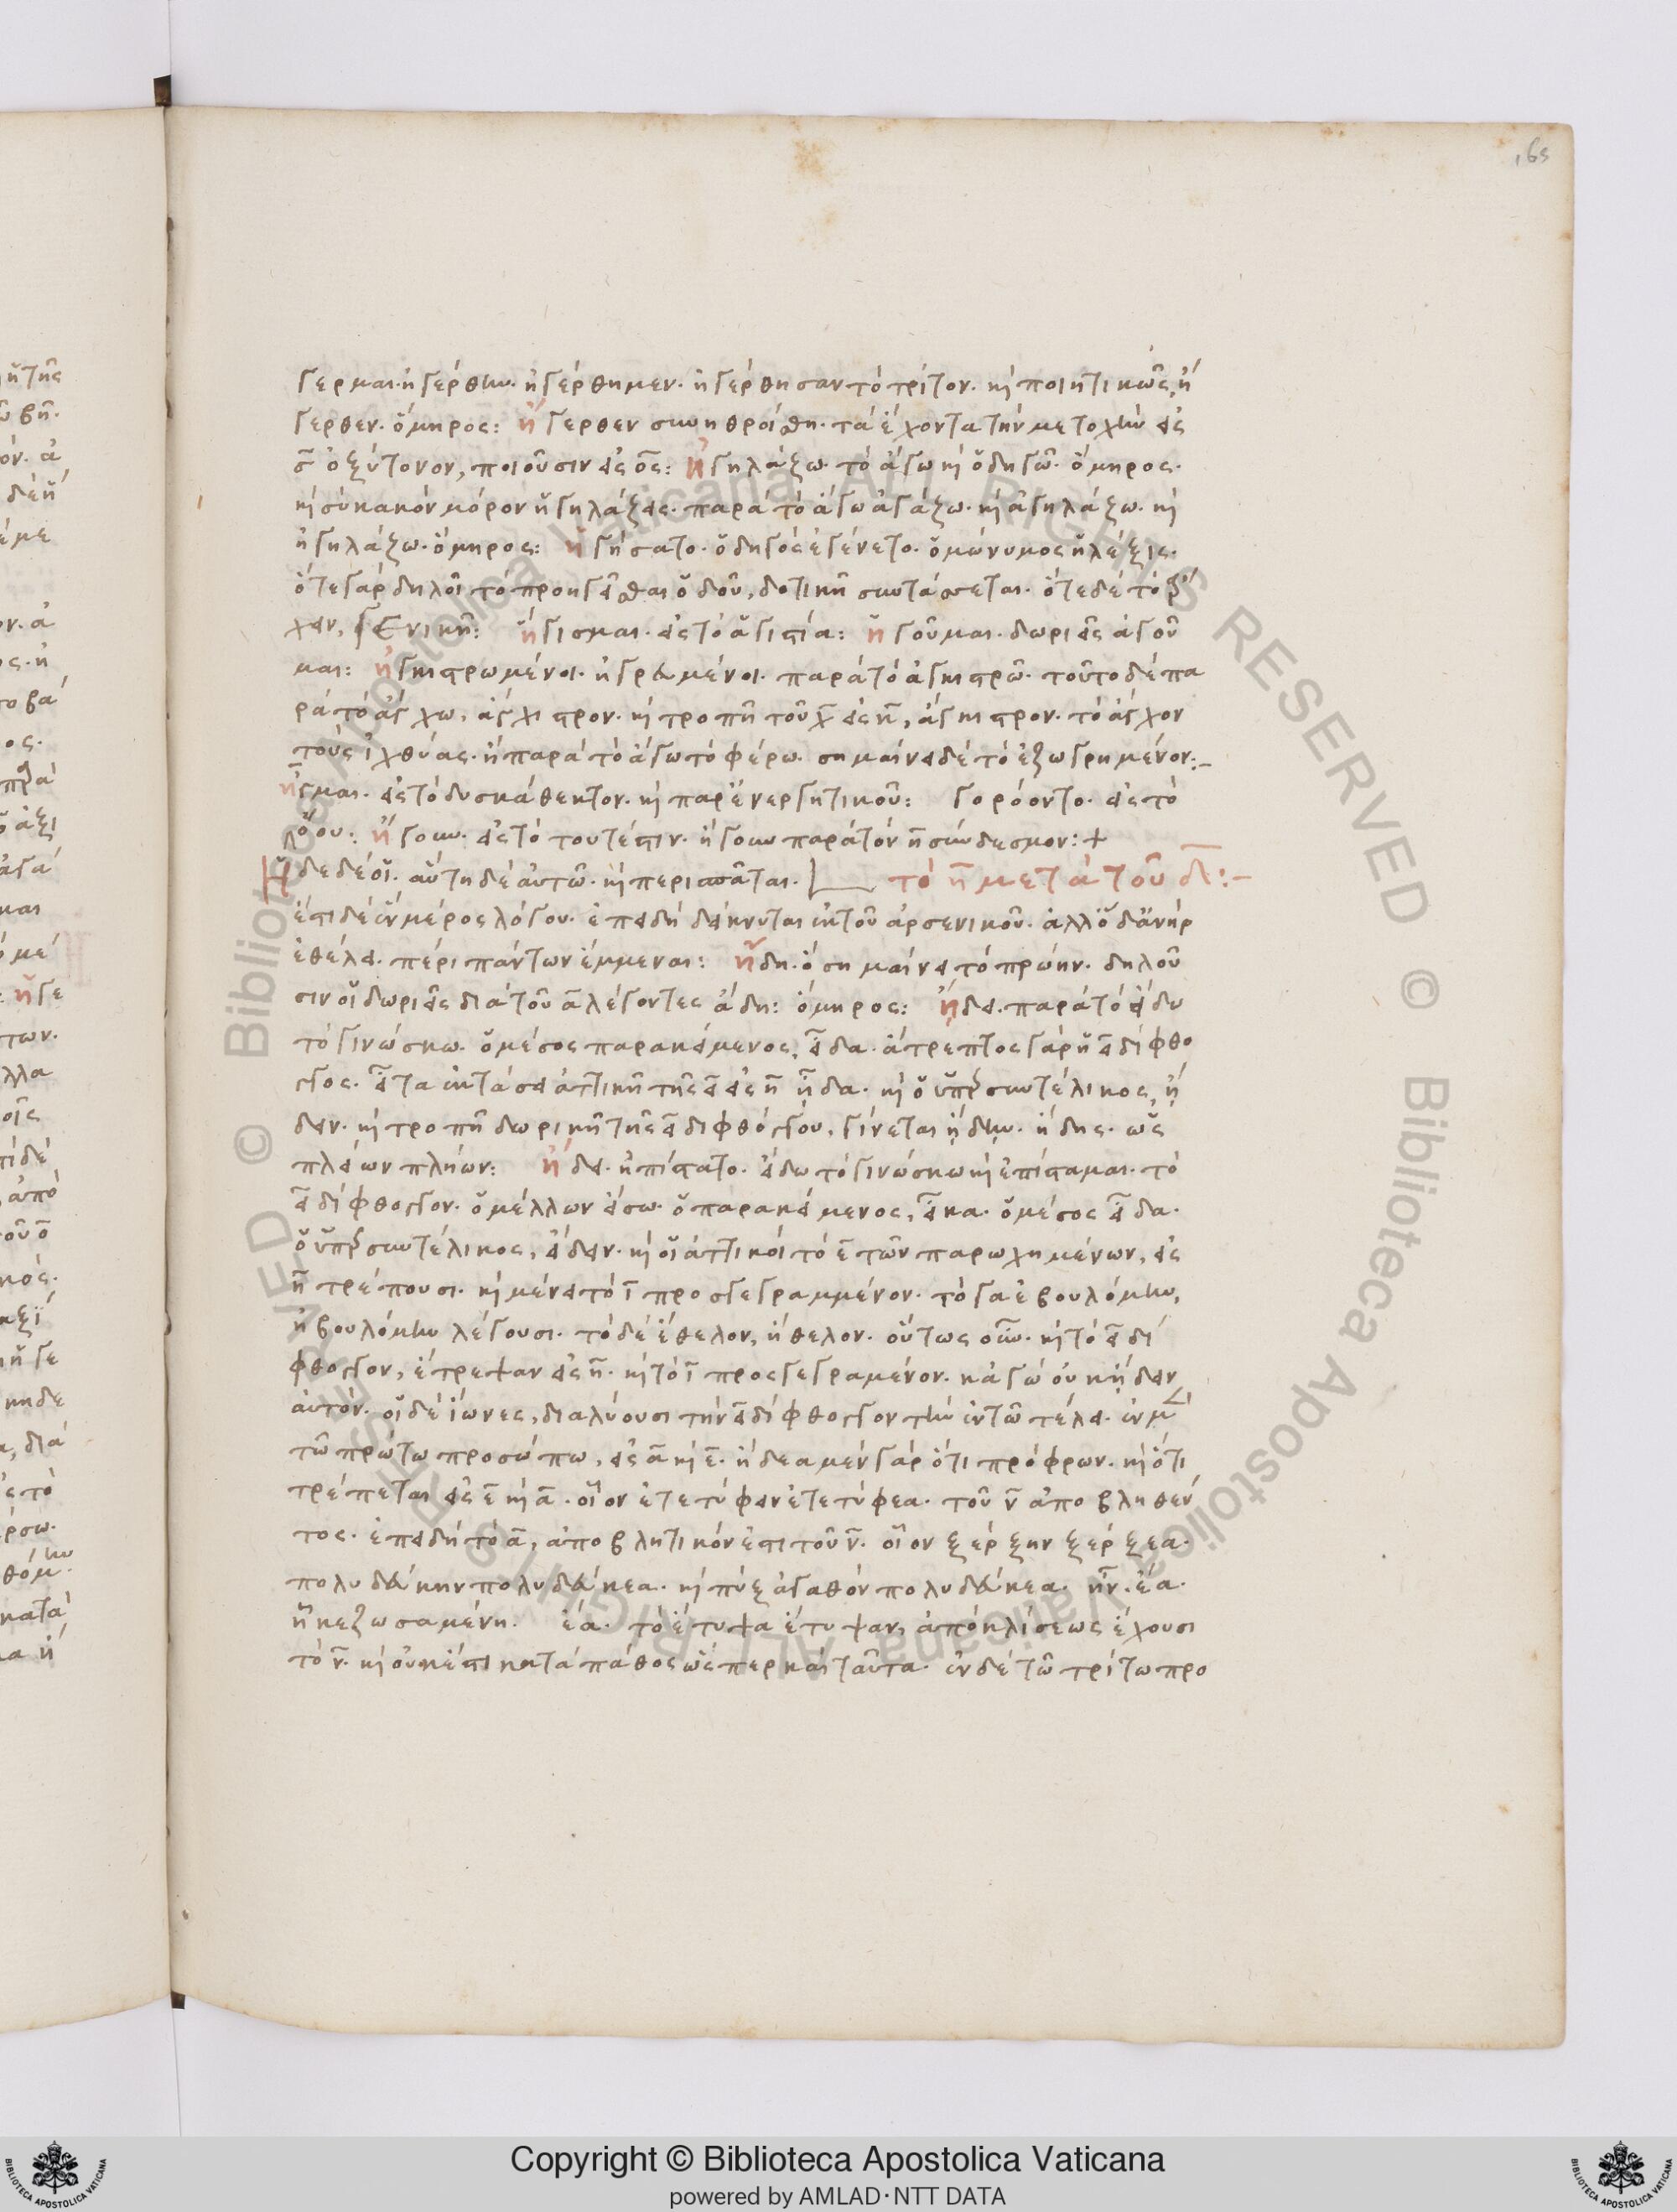 165
γερμαι· ἠγέρθην· ἠγέρθημεν· ἠγέρθησαν τὸ τρίτον· καὶ ποιητικῶς, ἤ
γερθεν· ὅμηρος: ἤγερθεν συνηθροίσθη· τὰ ἔχοντα τὴν μετοχὴν εἰς
ς ὀξύτονον, ποιοῦσιν εἰς ος: ἠγηλάζω· τὸ ἄγω καὶ ὁδηγῶ· ὅμηρος·
καὶ σὺ κακὸν μόρον ἡγηλάζεις· παρὰ τὸ ἄγω ἀγάζω· καὶ ἀγηλάζω· καὶ
ἠγηλάζω· ὅμηρος: ἡγήσατο· ὁδηγὸς ἐγένετο· ὁμώνυμος ἡ λέξις·
ὅτε γὰρ δηλοῖ τὸ προηγεῖσθαι ὁδοῦ, δοτικῆ συντάσσεται· ὅτε δὲ τὸ ἄρ
χειν, γενικῆ: ἥγισμαι· εἰς τὸ ἁγιστία: ἡγοῦμαι· δωριεῖς ἁγοῦ
μαι: ἠγκιστρωμένοι· ἠγρευμένοι· παρὰ τὸ ἀγκιστρῶ· τοῦτο δὲ πα
ρὰ τὸ ἄγχω, ἄγχιστρον· καὶ τροπῆ τοῦ χ εἰς κ, ἄγκιστρον· τὸ ἄγχον
τοὺς ἰχθύας· ἢ παρὰ τὸ ἄγω τὸ φέρω· σημαίνει δὲ τὸ ἐζωγρημένον:-
ἦγμαι· εἰς τὸ δυσκάθεκτον· καὶ παρενεργητικοῦ: γορόοντο· εἰς τὸ
λόου: ἤγουν· εἰς τὸ τουτέστιν· ἤγουν παρὰ τὸν η σύνδεσμον: +
Ἡδε δέ οἱ· αὕτη δὲ αὐτῶ· καὶ περισπᾶται· τὸ η μετὰ τοῦ δ:-
ἔστι δὲ ἓν μέρος λόγου· ἐπειδὴ δείκνυται ἐκ τοῦ ἀρσενικοῦ· ἀλλ' ὅδ' ἀνὴρ
ἐθέλει· περὶ πάντων ἔμμεναι: ἤδη· ὃ σημαίνει τὸ πρώην· δηλοῦ
σιν οἱ δωριεῖς διὰ τοῦ α λέγοντες ἄδη: ὅμηρος: ᾔδει· παρὰ τὸ εἴδω
τὸ γινώσκω· ὁ μέσος παρακείμενος, εἶδα· ἄτρεπτος γὰρ ἡ ει δίφθο
γγος· εἶτα ἐκτάσει ἀττικῆ τῆς ει εἰς η ᾖδα· καὶ ὁ ὑπερσυντέλικος, ᾔ
δειν· καὶ τροπῆ δωρικῆ τῆς ει διφθόγγου, γίνεται ᾔδην· ᾔδης· ὡς
πλείων πλήων: ᾔδει· ἠπίστατο· εἴδω τὸ γινώσκω καὶ ἐπίσταμαι· τὸ
ει δίφθογγον· ὁ μέλλων εἴσω· ὁ παρακείμενος, εἶκα· ὁ μέσος εἶδα·
ὁ ὑπερσυντέλικος, εἴδειν· καὶ οἱ ἀττικοὶ τὸ ε τῶν παρωχημένων, εἰς
η τρέπουσι· καὶ μένει τὸ ι προσγεγραμμένον· τὸ γὰ ἐβουλόμην,
ἠβουλόμην λέγουσι· τὸ δὲ ἔθελον, ἤθελον· οὕτως οὖν· καὶ τὸ ει δί
φθογγον, ἔτρεψαν εἰς η· καὶ τὸ ι προσγεγραμένον· κἀγὼ οὐκ ᾔδειν
αὐτόν· οἱ δὲ ἴωνες, διαλύουσι τὴν ει δίφθογγον τὴν ἐν τῶ τέλει· ἐν μ
τῶ πρώτω προσώπω, εἰς α καὶ ε· ᾔδεα μὲν γὰρ ὅτι πρόφρων· καὶ ὅτι
τρέπεται εἰς ε καὶ α· οἷον ἐτετύφειν ἐτετύφεα· τοῦ ν ἀποβληθέν
τος· ἐπειδὴ τὸ α, ἀποβλητικόν ἐστι τοῦ ν· οἷον ξέρξην ξέρξεα·
πολυδεύκην πολυδεύκεα· καὶ πὺξ ἀγαθὸν πολυδεύκεα· ἦν· ἔα·
ἦκεζωσαμένη· ἔα· τὸ ἔτυψα ἔτυψαν, ἀπὸ κλίσεως ἔχουσι
τὸ ν· καὶ οὐκ ἔστι κατὰ πάθος ὥσπερ καὶ ταῦτα· ἐν δὲ τῶ τρίτω προ
Copyright © Biblioteca Apostolica Vaticana
powered by AMLAD·NTT DATA